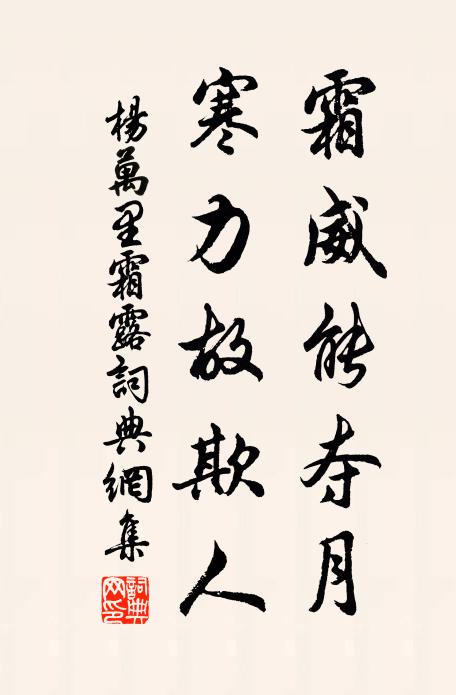 霜威能夺月
寒力故欺人
楊萬里霜露詞典網集
詞典网印